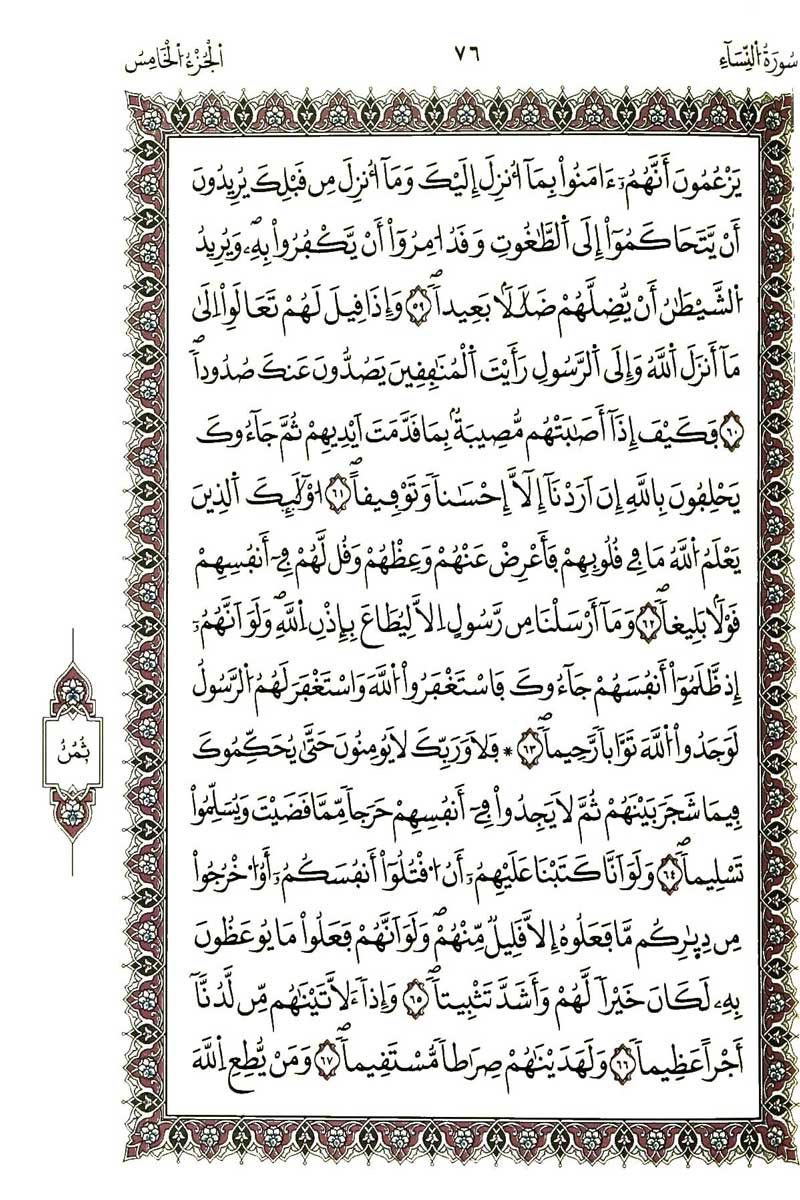 سُورَةُ النِّسَآءِ
٧٦
اَلْجُزْءُ الْخَامِسُ
يَزْعُمُونَ أَنَّهُمُۥٓ ءَامَنُواْ بِمَآ أُنزِلَ إِلَيْكَ وَمَآ أُنزِلَ مِن قَبْلِكَ يُرِيدُونَ
أَنْ يَّتَحَاكَمُوٓاْ إِلَى اَ۬لطَّٰغُوتِ وَقَدُ ا۟مِرُوٓاْ أَنْ يَّكْفُرُواْ بِهِۦۖ وَيُرِيدُ
اُ۬لشَّيْطَٰنُ أَنْ يُّضِلَّهُمْ ضَلَٰلاَۢ بَعِيداٗۖ ٥٩ وَإِذَا قِيلَ لَهُمْ تَعَالَوِاْ اِلَىٰ
مَآ أَنزَلَ اَ۬للَّهُ وَإِلَى اَ۬لرَّسُولِ رَأَيْتَ اَ۬لْمُنَٰفِقِينَ يَصُدُّونَ عَنكَ صُدُوداٗۖ
٦٠ فَكَيْفَ إِذَآ أَصَٰبَتْهُم مُّصِيبَةُۢ بِمَا قَدَّمَتَ اَيْدِيهِمْ ثُمَّ جَآءُوكَ
يَحْلِفُونَ بِاللَّهِ إِنَ اَرَدْنَآ إِلَّآ إِحْسَٰناٗ وَتَوْفِيقاًۖ ٦١ ا۟وْلَٰٓئِكَ اَ۬لذِينَ
يَعْلَمُ اُ۬للَّهُ مَا فِے قُلُوبِهِمْ فَأَعْرِضْ عَنْهُمْ وَعِظْهُمْ وَقُل لَّهُمْ فِےٓ أَنفُسِهِمْ
قَوْلاَۢ بَلِيغاٗۖ ٦٢ وَمَآ أَرْسَلْنَا مِن رَّسُولٍ اِلَّا لِيُطَاعَ بِإِذْنِ اِ۬للَّهِۖ وَلَوَ اَنَّهُمُۥٓ
إِذ ظَّلَمُوٓاْ أَنفُسَهُمْ جَآءُوكَ فَاسْتَغْفَرُواْ اُ۬للَّهَ وَاسْتَغْفَرَ لَهُمُ اُ۬لرَّسُولُ
لَوَجَدُواْ اُ۬للَّهَ تَوَّاباٗ رَّحِيماٗۖ ٦٣ * فَلَا وَرَبِّكَ لَا يُومِنُونَ حَتَّىٰ يُحَكِّمُوكَ
فِيمَا شَجَرَ بَيْنَهُمْ ثُمَّ لَا يَجِدُواْ فِےٓ أَنفُسِهِمْ حَرَجاٗ مِّمَّا قَضَيْتَ وَيُسَلِّمُواْ
تَسْلِيماٗۖ ٦٤ وَلَوَ اَنَّا كَتَبْنَا عَلَيْهِمُۥٓ أَنُ اُ۟قْتُلُوٓاْ أَنفُسَكُمُۥٓ أَوُ اُ۟خْرُجُواْ
مِن دِيٰ۪رِكُم مَّا فَعَلُوهُ إِلَّا قَلِيلٞ مِّنْهُمْۖ وَلَوَ اَنَّهُمْ فَعَلُواْ مَا يُوعَظُونَ
بِهِۦ لَكَانَ خَيْراٗ لَّهُمْ وَأَشَدَّ تَثْبِيتاٗۖ ٦٥ وَإِذاٗ ءَلَّأتَيْنَٰهُم مِّن لَّدُنَّآ
أَجْراً عَظِيماٗ ٦٦ وَلَهَدَيْنَٰهُمْ صِرَاطاٗ مُّسْتَقِيماٗۖ ٦٧ وَمَنْ يُّطِعِ اِ۬للَّهَ
ثُمُنُ